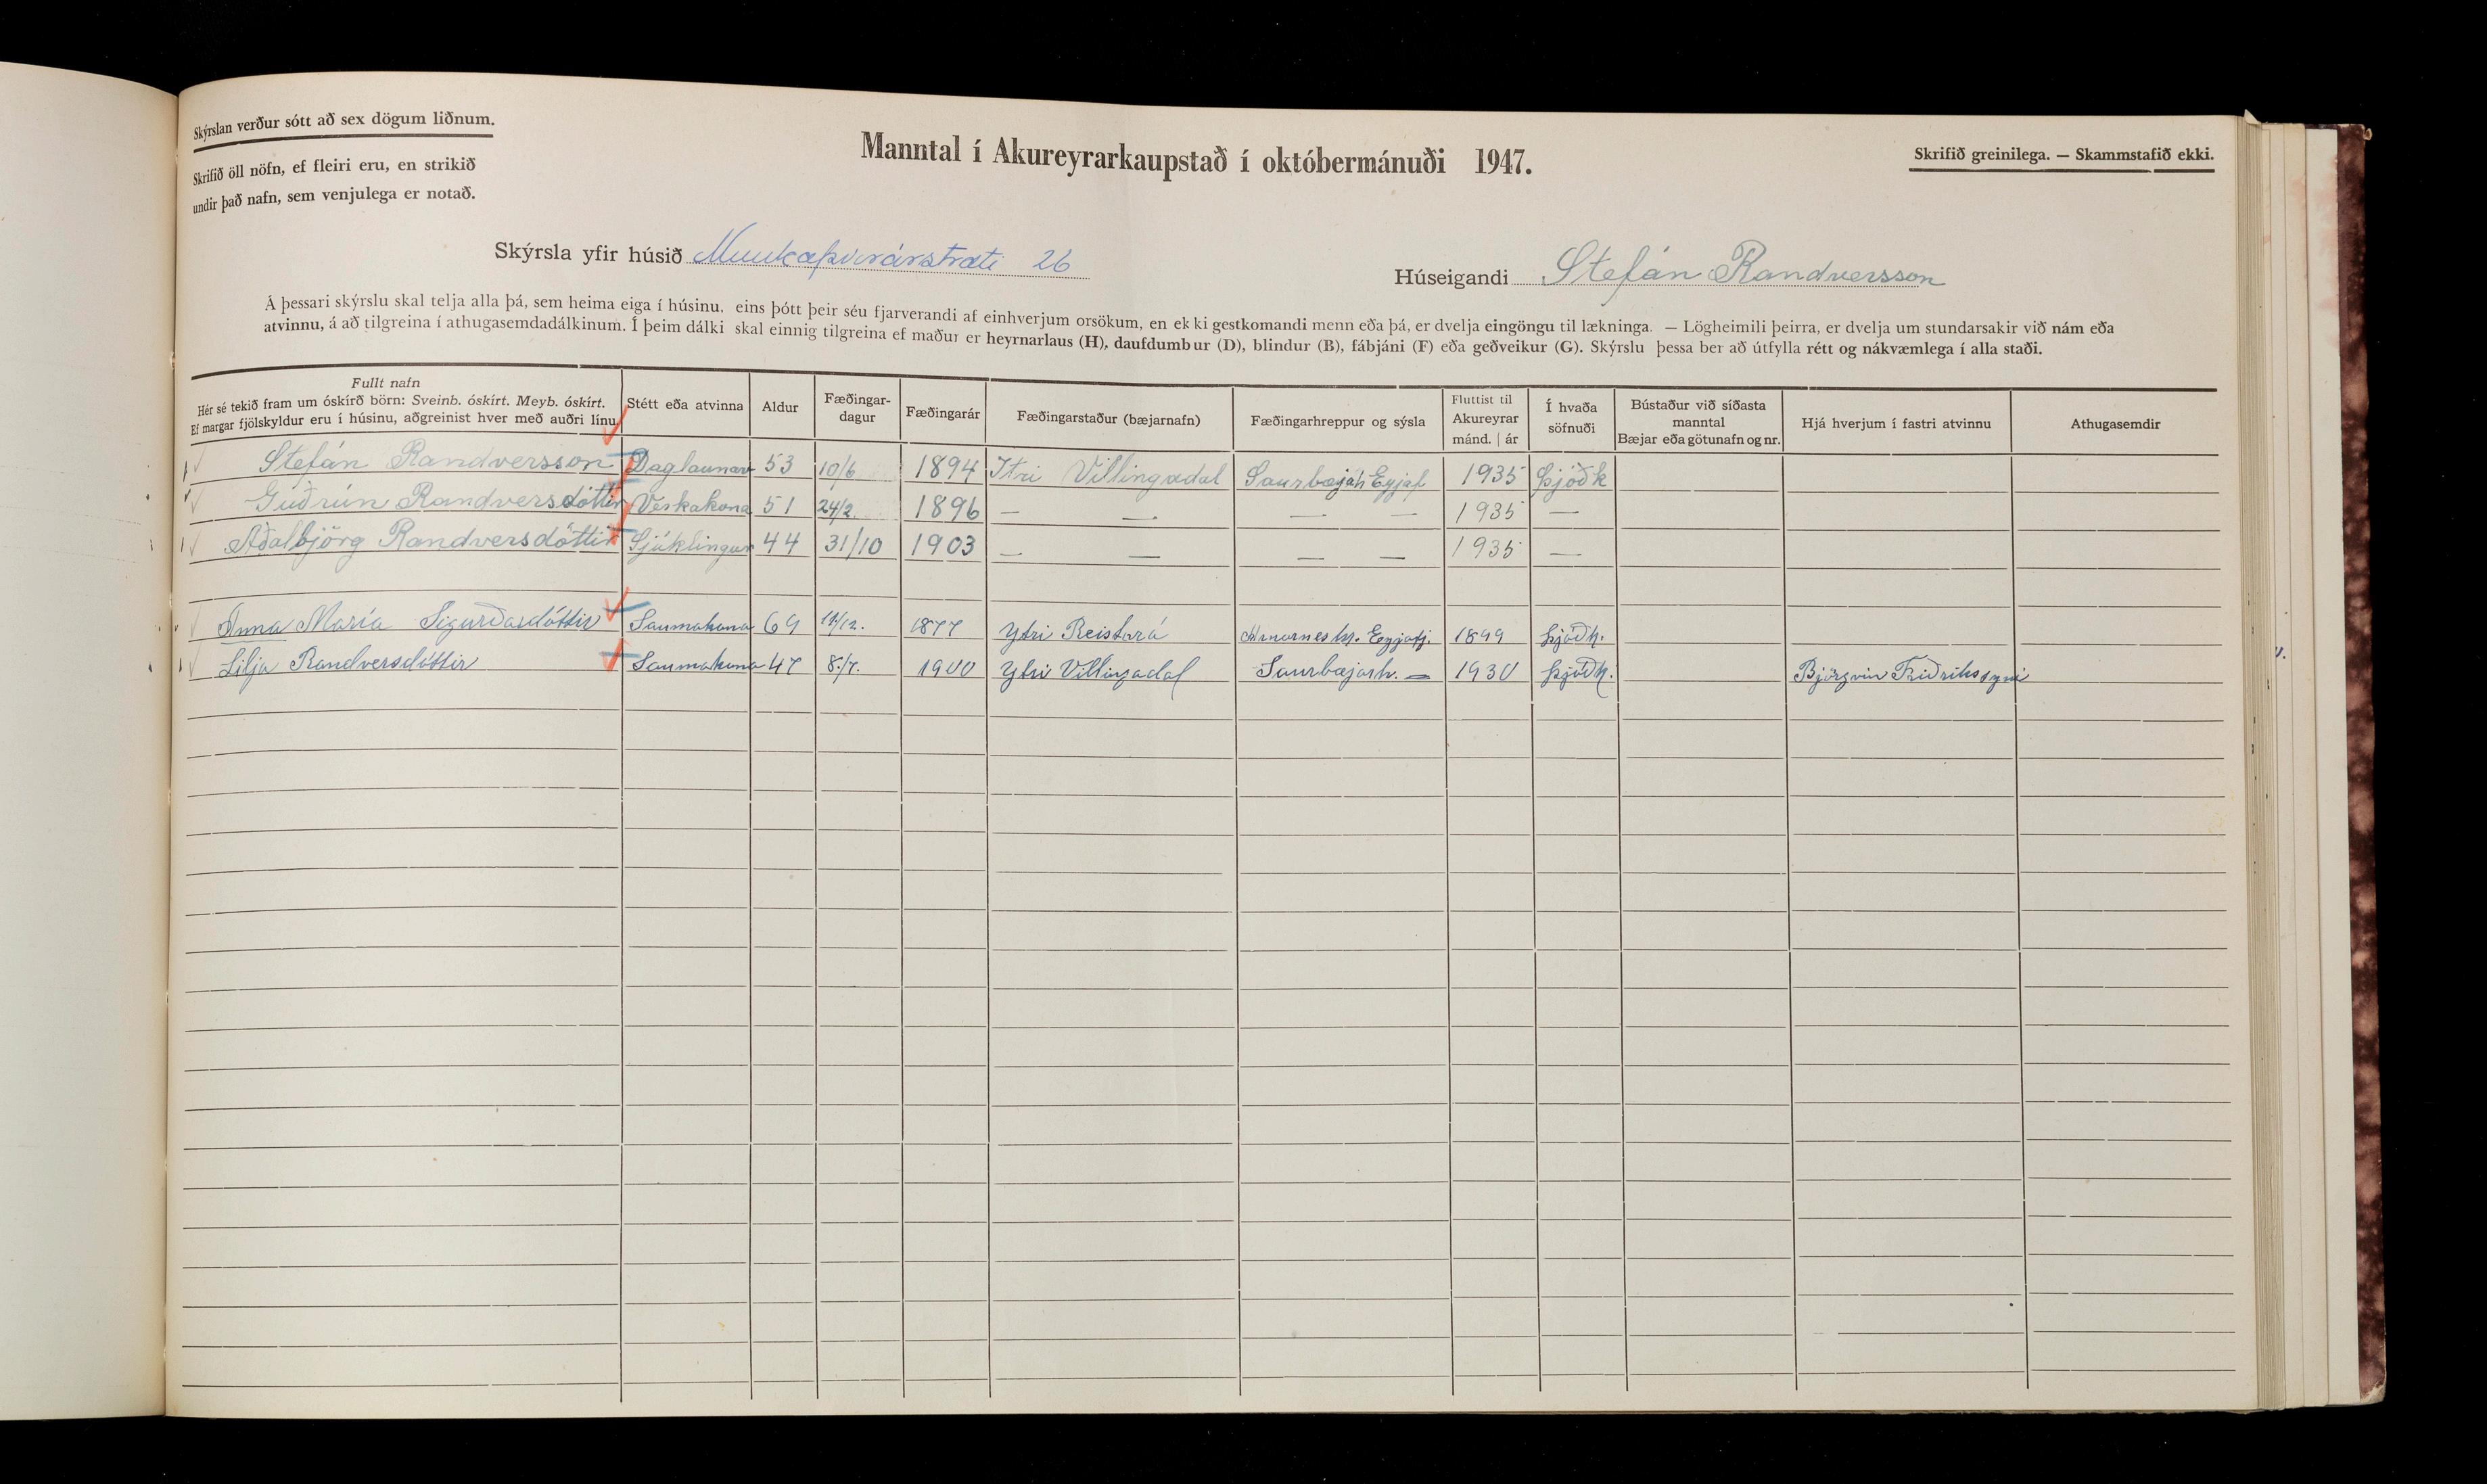 Skýrslan verður sótt að sex dögum liðnum.
Skrifið öll nöfn, ef fleiri eru, en strikið
undir það nafn, sem venjulega er notað.
Manntal í Akureyrarkaupstað í októbermánuði 1947.
Skrifið greinilega. — Skammstafið ekki.
Skýrsla yfir húsið Munkaþverárstræti 26
Húseigandi Stefán Randversson
Á þessari skýrslu skal telja alla þá, sem heima eiga í húsinu, eins þótt þeir séu fjarverandi af einhverjum orsökum, en ekki gestkomandi menn eða þá, er dvelja eingöngu til lækninga. — Lögheimili þeirra, er dvelja um stundarsakir við nám eða
atvinnu, á að tilgreina í athugasemdadálkinum. Í þeim dálki skal einnig tilgreina ef maður er heyrnarlaus (H), daufdumbur (D), blindur (B), fábjáni (F) eða geðveikur (G). Skýrslu þessa ber að útfylla rétt og nákvæmlega í alla staði.
Fullt nafn
Hér sé tekið fram um óskírð börn: Sveinb. óskírt. Meyb. óskírt.
Ef margar fjölskyldur eru í húsinu, aðgreinist hver með auðri línu
Stétt eða atvinna
Aldur
Fæðingar-
dagur
Fæðingarár
Fæðingarstaður (bæjarnafn)
Fæðingarhreppur og sýsla
Fluttist til
Akureyrar
mánd. | ár
Í hvaða
söfnuði
Bústaður við síðasta
manntal
Bæjar eða götunafn og nr.
Hjá hverjum í fastri atvinnu
Athugasemdir
Stefán Randversson Daglaunam 53 10/6 1894 Itri Villingadal Saurbæjah Eyjaf 1935 Þjóðk
Guðrún Randversdóttir Verkakona 51 24/2 1896 — — — — 1935 —
Aðalbjörg Randversdóttir Sjúklingur 44 31/10 1903 — — — — 1935 —
Anna María Sigurðardóttir Saumakona 69 14/12. 1877 Ytri Reistará Arnarneshr. Eyjafj. 1899 Þjóðk.
Lilja Randversdóttir Saumakona 47 8./7. 1900 Ytri Villingadal Saurbæjarh. — 1930 Þjóðk. Björgvin Friðrikssyni